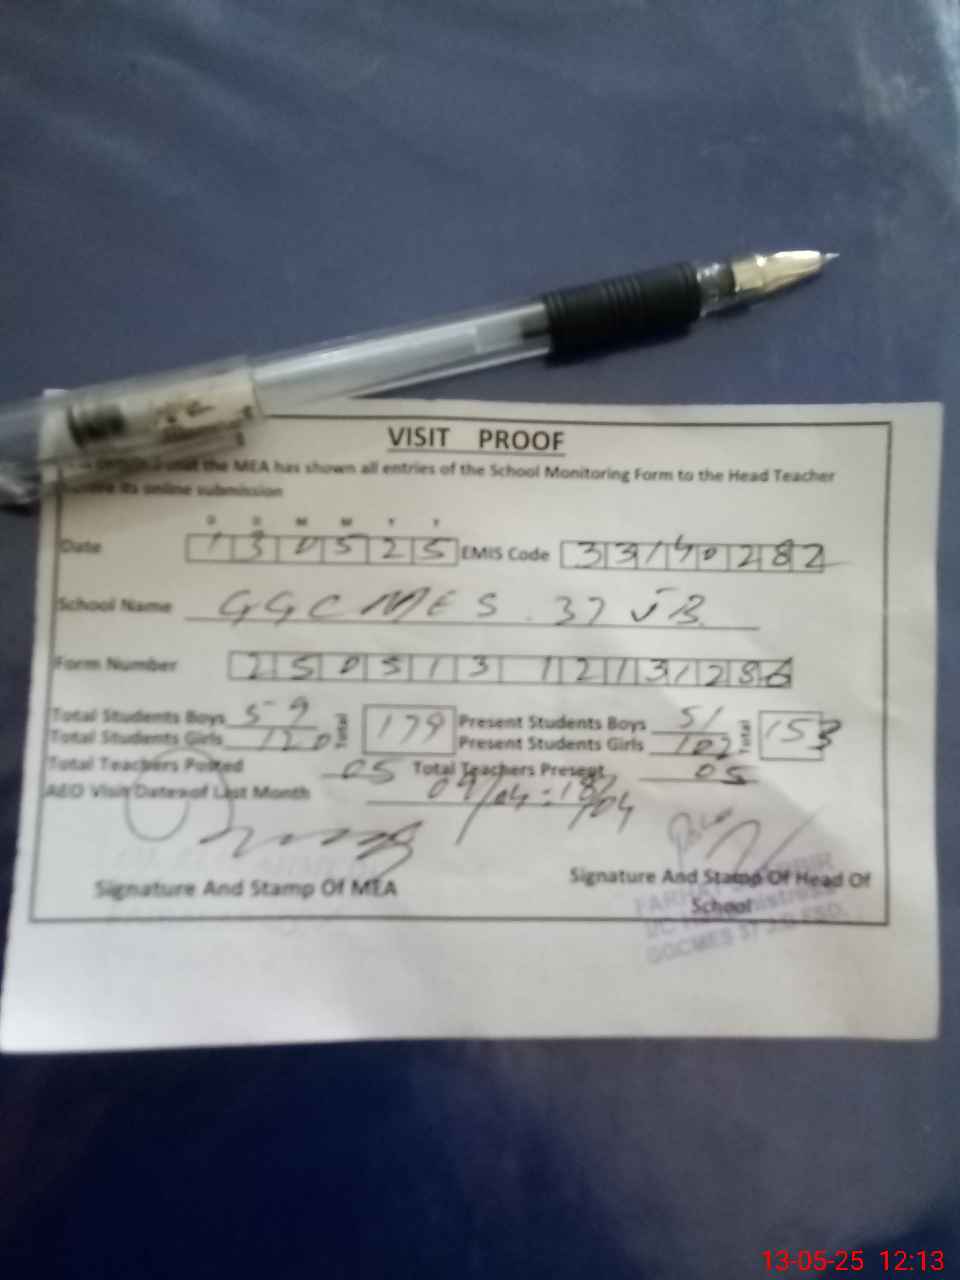 VISIT PROOF
that the MEA has shown all entries of the School Monitoring Form to the Head Teacher
its online submission
D D M M Y Y
Date 130525 EMIS Code 33140282
School Name GGCMES 37 JB
Form Number 250513 12131286
Total Students Boys 59 Total 179 Present Students Boys 51 Total 153
Total Students Girls 120 Present Students Girls 102
Total Teachers Posted 05 Total Teachers Present 05
AEO Visit Dates of Last Month 09/04 : 18/04
Signature And Stamp Of MEA
Signature And Stamp Of Head Of
School
GGCMES 37
13-05-25 12:13